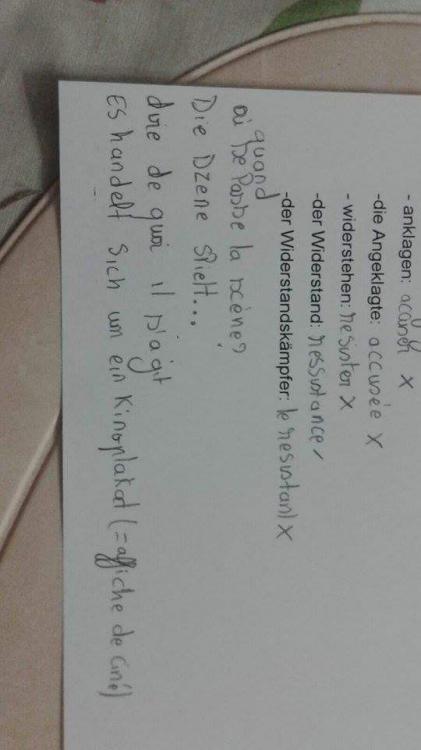 - anklagen: acuser x
-die Angeklagte: accusée x
- widerstehen: resister x
-der Widerstand: ressistance /
-der Widerstandskämpfer: le resistant x
quand
où se Passe la scène?
Die Szene spielt...
dire de quoi il s'agit
Es handelt sich um ein Kinoplakat (=affiche de ciné)